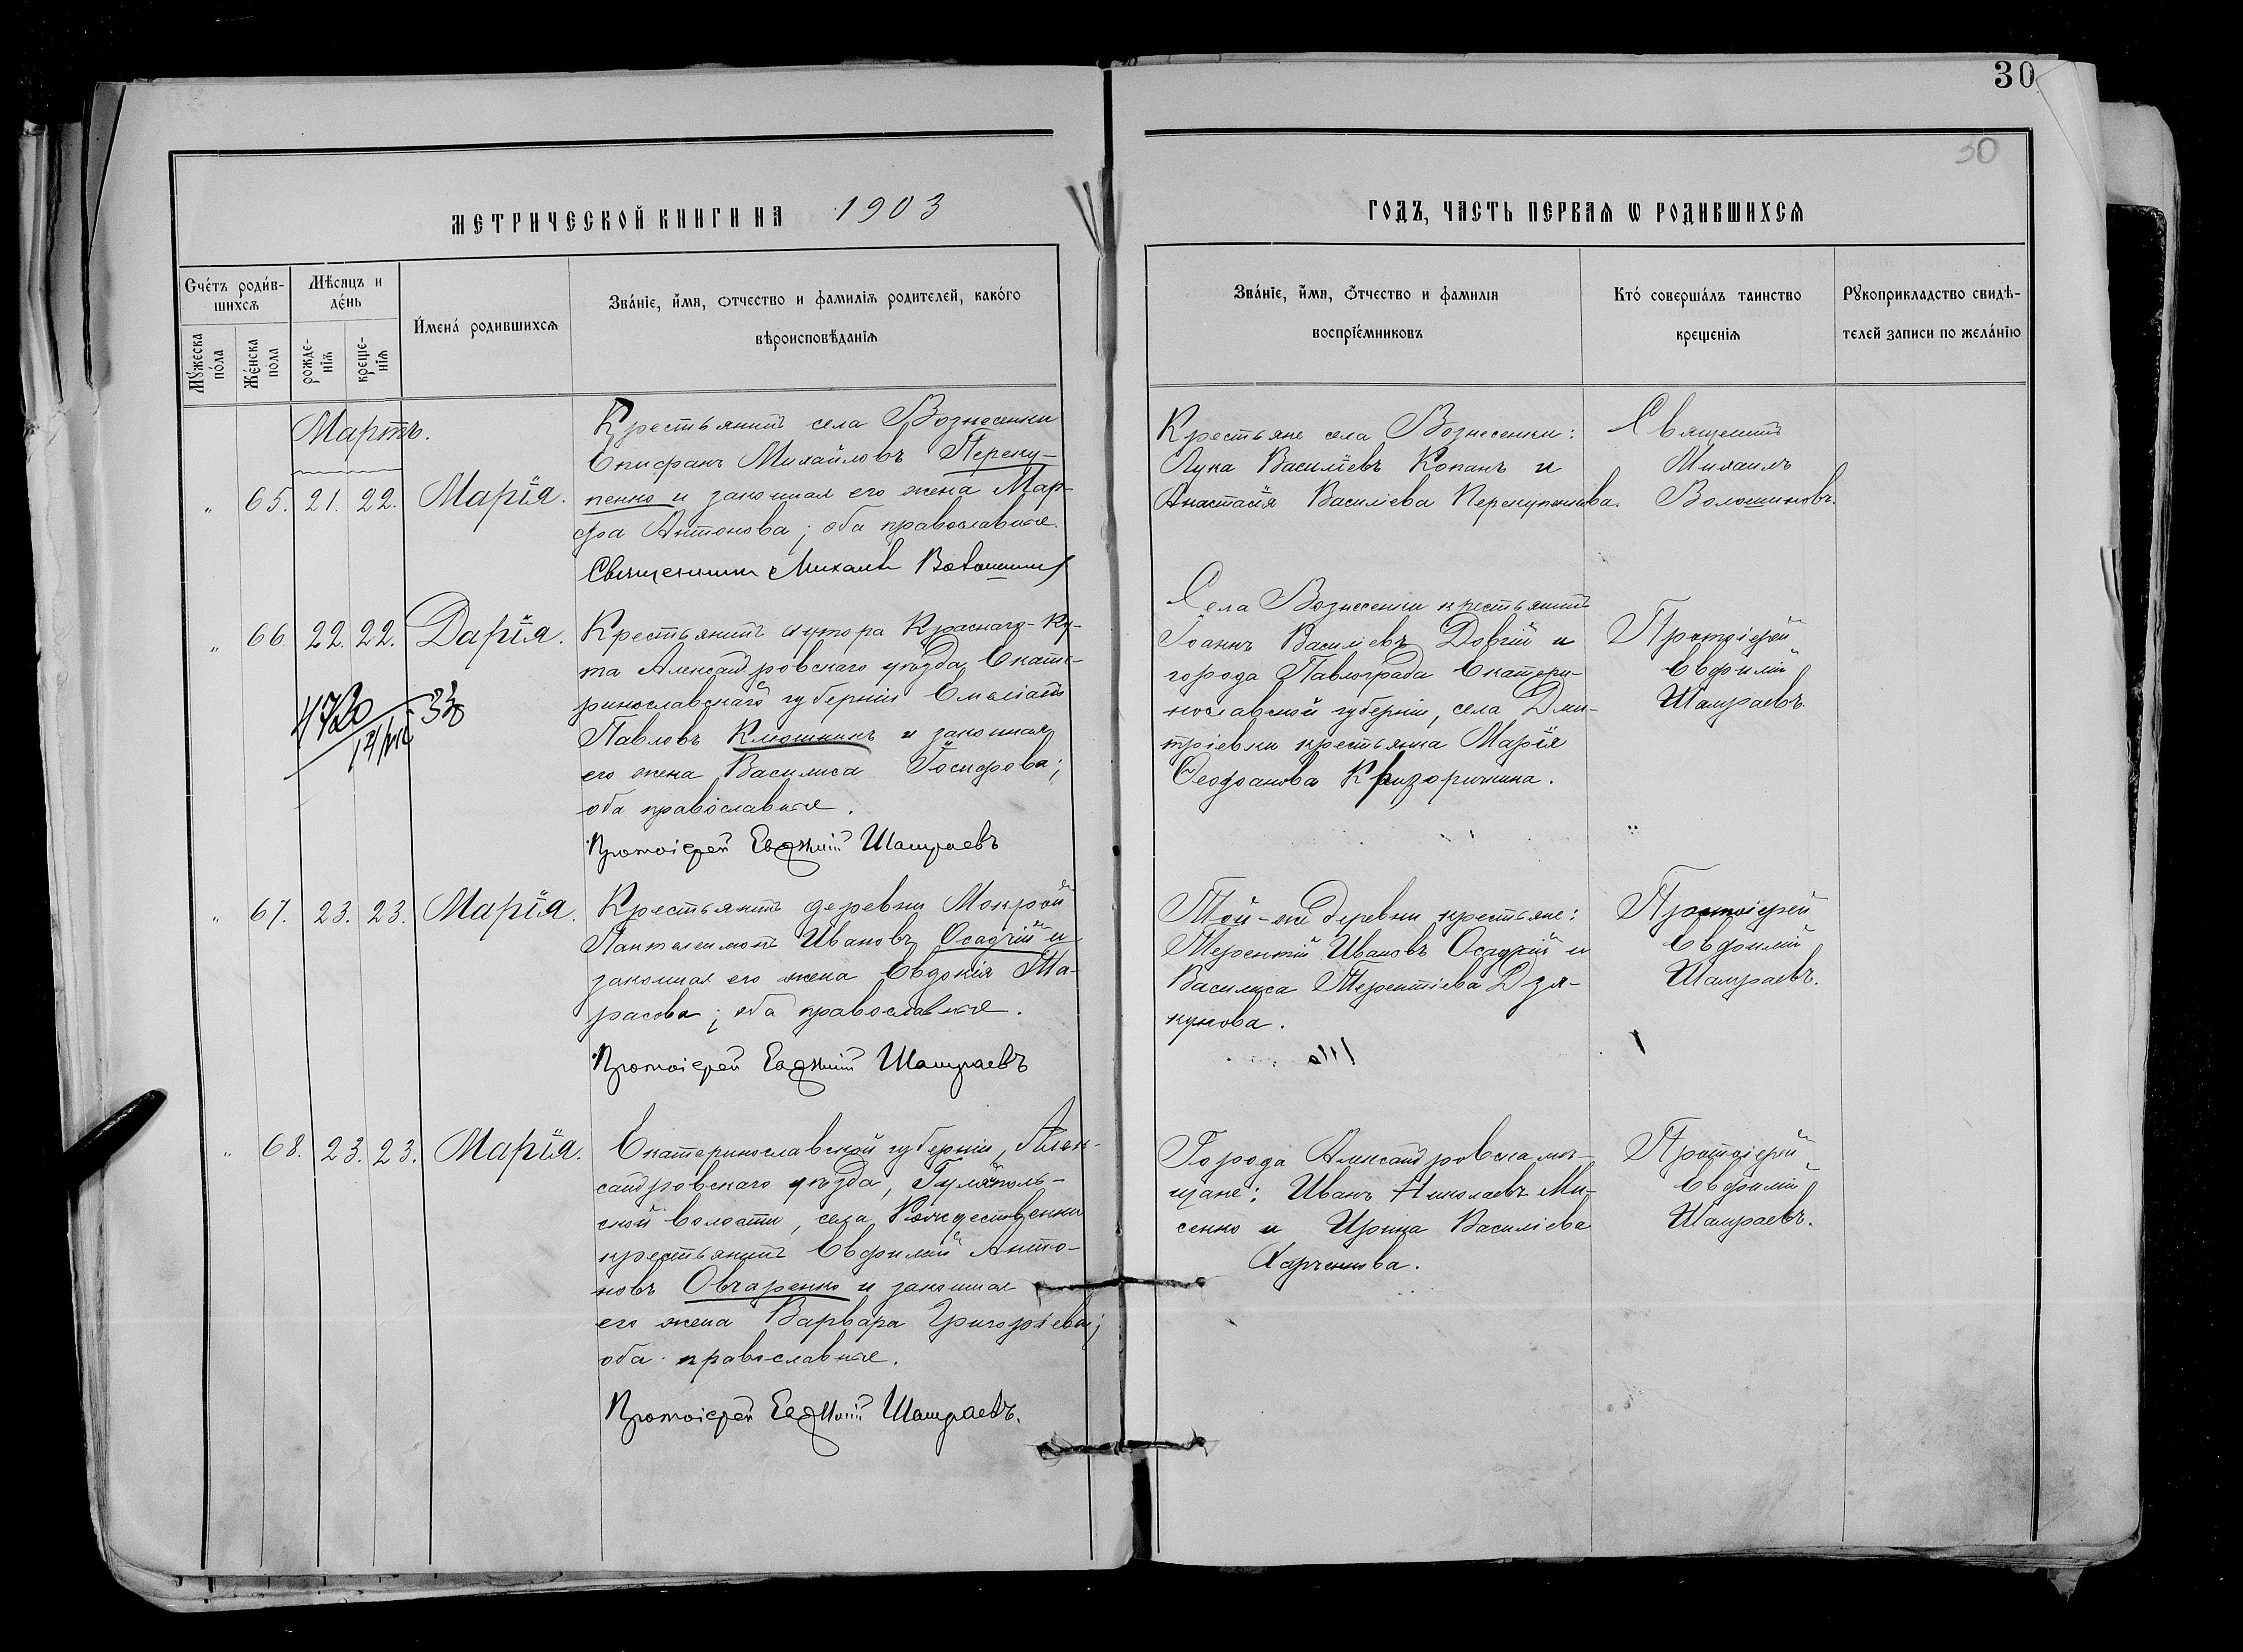 30
30
МЕТРИЧЕСКОЙ КНИГИ НА 1903
ГОДЪ, ЧАСТЬ ПЕРВАѦ Ѡ РОДИВШИХСѦ
Счéтъ родив-
шихсѧ
Мѣсяцъ и
дéнь
Имена́ родившихсѧ
Звáніе, и́мя, ѻтчество и фамиліѧ родителей, какóго
вѣроисповѣданіѧ
Мꙋжеска
пóла
Жéнска
пола
рожде-
ніѧ
креще-
ніѧ
Звáніе, и́мя, ѻтчество и фамиліѧ
воспріéмниковъ
Ктó совершáлъ таинство
крещеніѧ
Рꙋкоприкладство свидѣ-
телей записи по желáнію
Мартъ.
" 65. 21. 22. Марія.
Крестьянинъ села Вознесенки
Епифанъ Михайловъ Переку-
пенко и законная его жена Мар-
фа Антонова; оба православные.
Священникъ Михаилъ Волошиновъ
Крестьяне села Вознесенки:
Лука Василіевъ Копанъ и
Анастасія Василіева Перекупенкова.
Священникъ
Михаилъ
Волошиновъ.
" 66. 22. 22. Дарія.
Крестьянинъ хутора Краснаго-Ку-
та Александровскаго уѣзда, Екате-
ринославской губерніи Емеліанъ
Павловъ Клюшникъ и законная
его жена Василиса Іосифова;
оба православные.
Протоіерей Евфимій Шамраевъ
4720
Села Вознесенки крестьянинъ
Іоаннъ Василіевъ Довгій и
города Павлограда Екатери-
нославской губерніи, села Дми-
тріевки крестьянка Марія
Ѳеофанова
Протоіерей
Евфимій
Шамраевъ.
" 67. 23. 23. Марія.
Крестьянинъ деревни Мокрой
Пантелеимонъ Ивановъ Осадчій и
законная его жена Евдокія Та-
расова; оба православные.
Протоіерей Евфимій Шамраевъ
Той-же деревни крестьяне:
Терентій Ивановъ Осадчій и
Василиса Терентіева Дзя-
кунова.
Протоіерей
Евфимій
Шамраевъ.
" 68. 23. 23. Марія.
Екатеринославской губерніи, Алек-
сандровскаго уѣзда, Гуляйполь-
ской волости, села Рождественки
крестьянинъ Евфимій Анто-
новъ Овчаренко и законная
его жена Варвара Григорьева;
оба православные.
Протоіерей Евфимій Шамраевъ.
Города Александровска мѣ-
щане: Иванъ Николаевъ Ми-
сенко и Ирина Василіева
Харченкова.
Протоіерей
Евфимій
Шамраевъ.